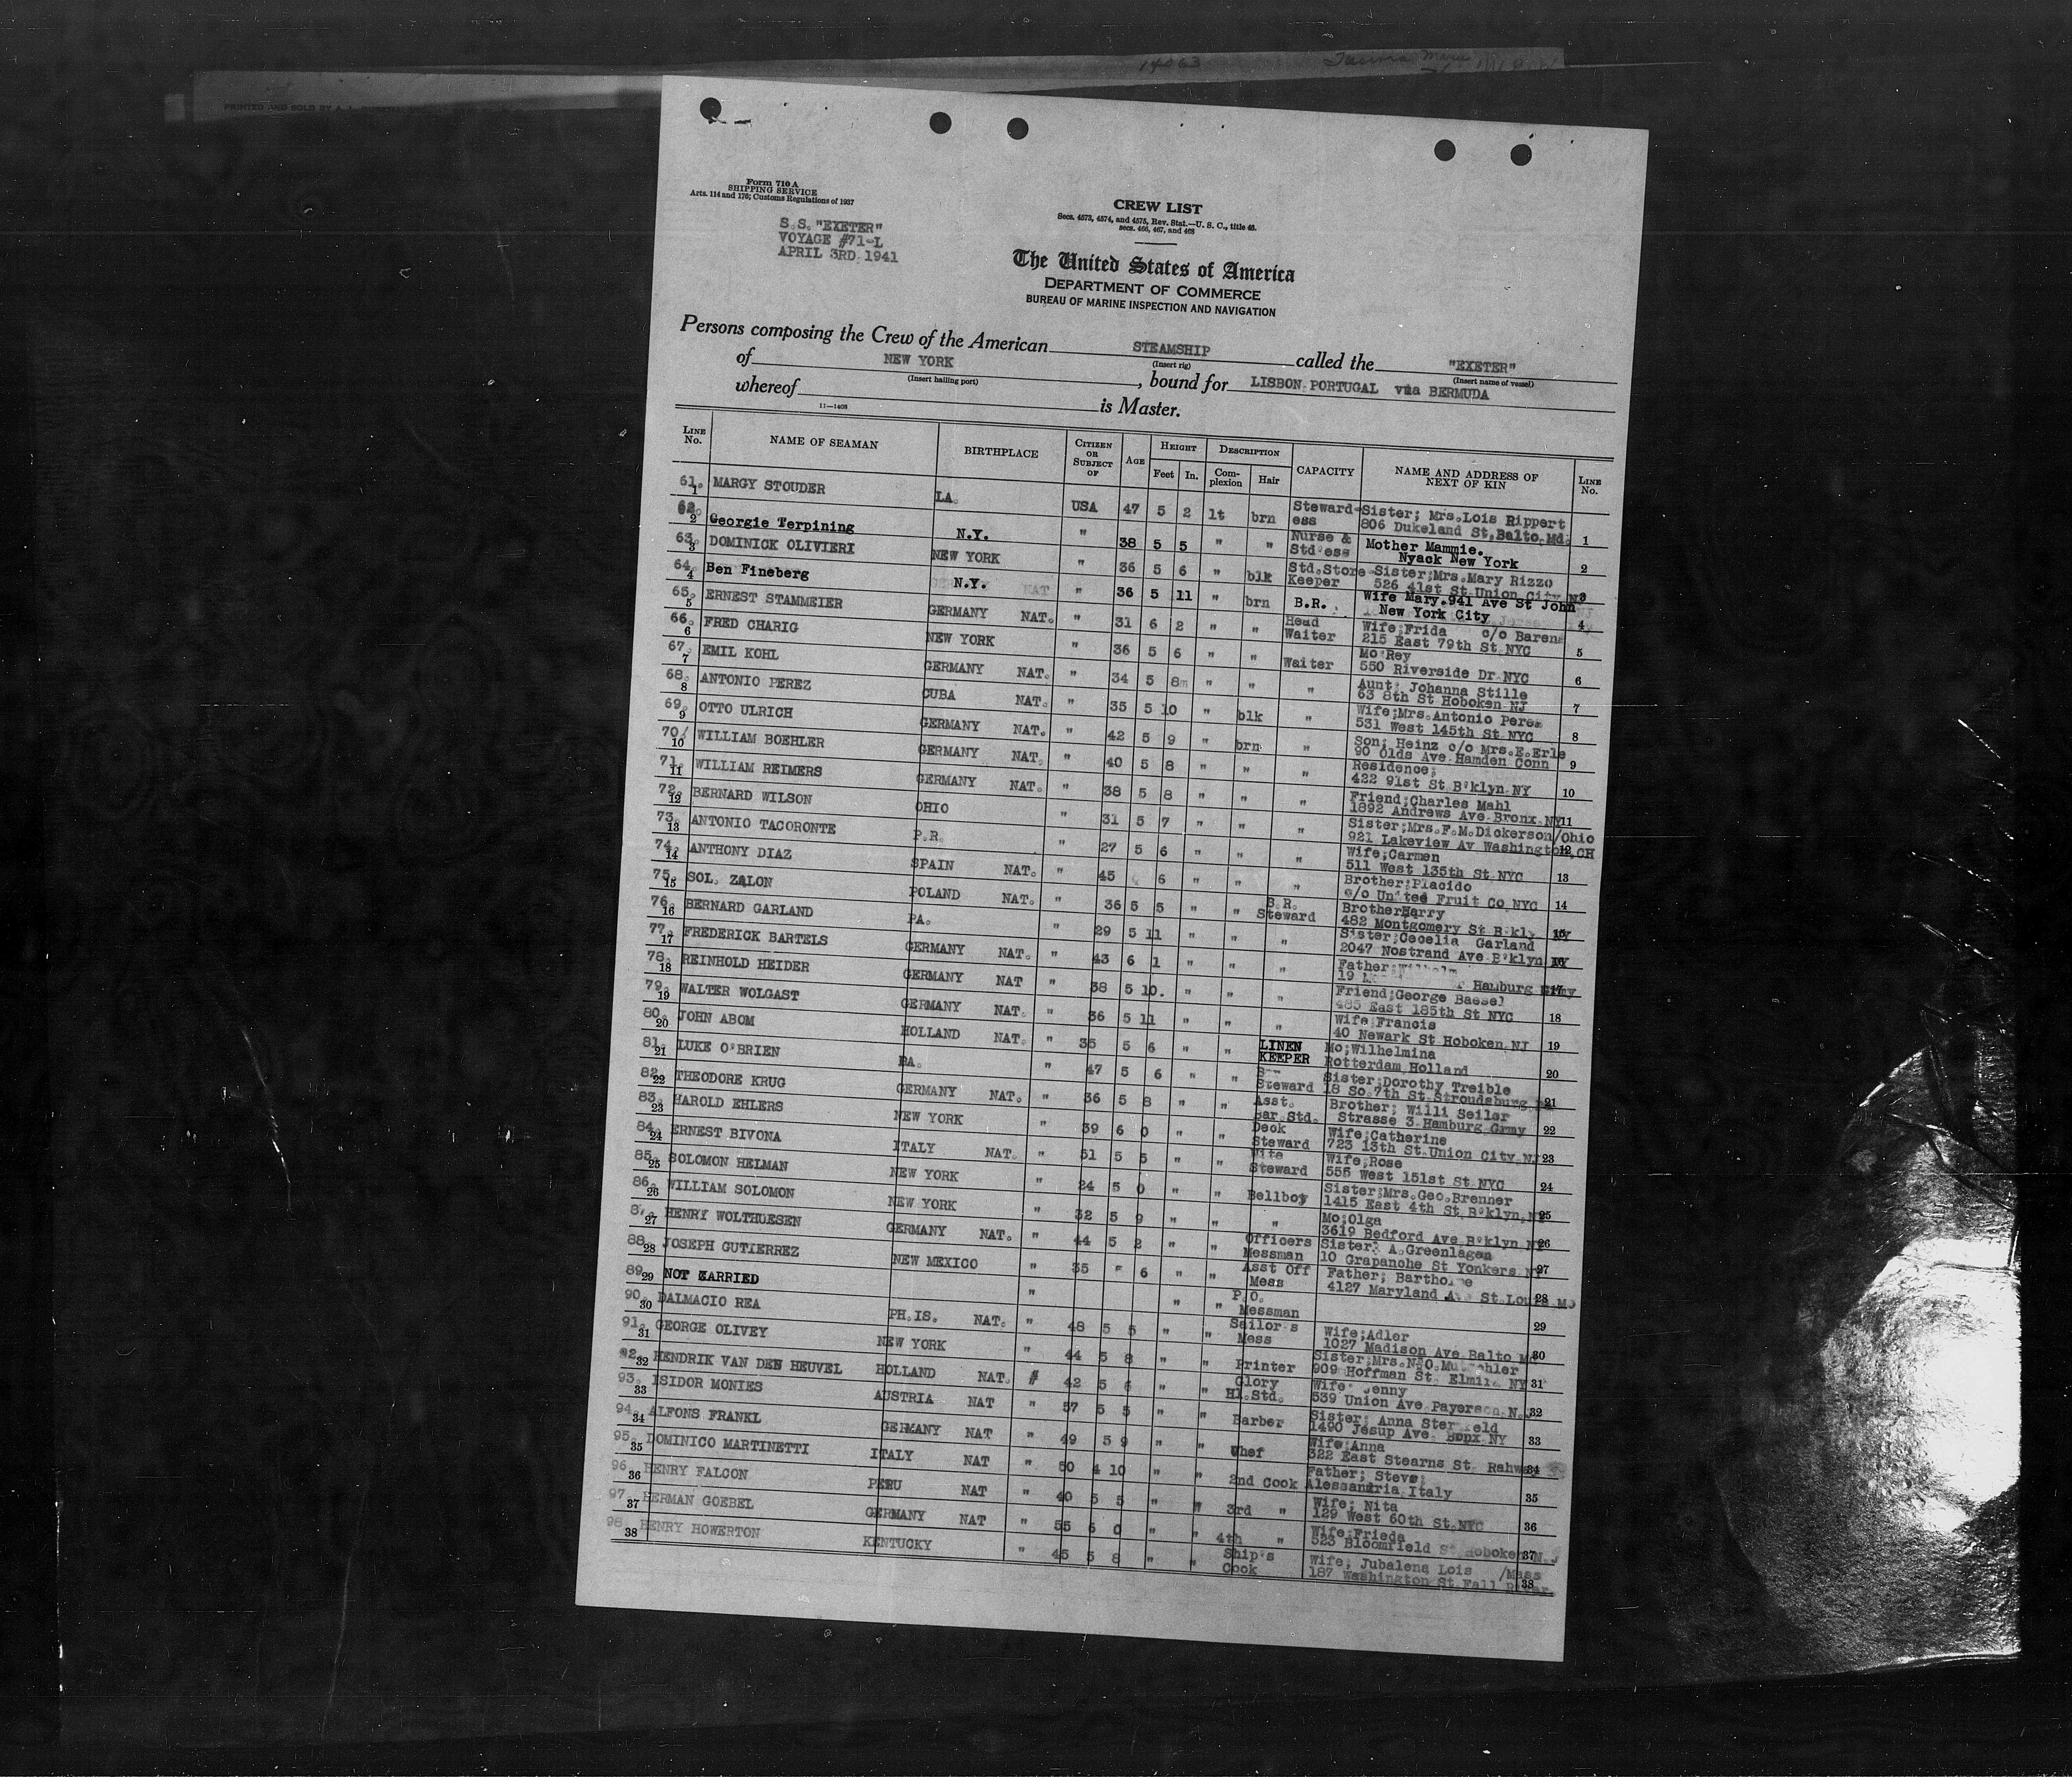 14063
PRINTED AND SOLD BY A. L.
Form 710 A
SHIPPING SERVICE
Arts. 114 and 176; Customs Regulations of 1937
S.S. "EXETER"
VOYAGE #71-L
APRIL 3RD. 1941
CREW LIST
Secs. 4573, 4574, and 4575, Rev. Stat.—U. S. C., title 46.
secs. 466, 467, and 468
The United States of America
DEPARTMENT OF COMMERCE
BUREAU OF MARINE INSPECTION AND NAVIGATION
Persons composing the Crew of the American STEAMSHIP called the "EXETER"
(Insert rig) (Insert name of vessel)
of NEW YORK, bound for LISBON PORTUGAL via BERMUDA
(Insert hailing port)
whereof is Master.
11—1408
LINE No. NAME OF SEAMAN BIRTHPLACE CITIZEN OR SUBJECT OF AGE HEIGHT Feet In. DESCRIPTION Complexion Hair CAPACITY NAME AND ADDRESS OF NEXT OF KIN LINE No.
61. 1 MARGY STOUDER LA. USA 47 5 2 lt brn Steward-ess Sister; Mrs.Lois Rippert 806 Dukeland St,Balto.Md. 1
62. 2 Georgie Terpining N.Y. " 38 5 5 " " Nurse & Std'ess Mother Mammie. Nyack New York 2
63. 3 DOMINICK OLIVIERI NEW YORK " 36 5 6 " blk Std.Store Keeper Sister;Mrs.Mary Rizzo 526 41st St Union City NJ 3
64. 4 Ben Fineberg N.Y. " 36 5 11 " brn B.R. Wife Mary.941 Ave St John New York City 4
65. 5 ERNEST STAMMEIER GERMANY NAT. " 31 6 2 " " Head Waiter Wife;Frida c/o Baren 215 East 79th St NYC 5
66. 6 FRED CHARIG NEW YORK " 36 5 6 " " Waiter Mo Rey 550 Riverside Dr NYC 6
67. 7 EMIL KOHL GERMANY NAT. " 34 5 8 " " " Aunt; Johanna Stille 63 8th St Hoboken NJ 7
68. 8 ANTONIO PEREZ CUBA NAT. " 35 5 10 " blk " Wife;Mrs.Antonio Perez 531 West 145th St NYC 8
69. 9 OTTO ULRICH GERMANY NAT. " 42 5 9 " brn " Son; Heinz c/o Mrs.E.Erle 90 Olds Ave Hamden Conn 9
70. 10 WILLIAM BOEHLER GERMANY NAT. " 40 5 8 " " " Residence; 422 91st St B'klyn NY 10
71. 11 WILLIAM REIMERS GERMANY NAT. " 38 5 8 " " " Friend;Charles Mahl 1892 Andrews Ave Bronx NY 11
72. 12 BERNARD WILSON OHIO " 31 5 7 " " " Sister;Mrs.F.M.Dickerson/Ohio 921 Lakeview Av Washington,CH 12
73. 13 ANTONIO TACORONTE P.R. " 27 5 6 " " " Wife;Carmen 511 West 135th St NYC 13
74. 14 ANTHONY DIAZ SPAIN NAT. " 45 6 " " " Brother;Placido c/o United Fruit Co NYC 14
75. 15 SOL. ZALON POLAND NAT. " 36 5 5 " " B.R. Steward Brother Harry 482 Montgomery St B'kly 15
76. 16 BERNARD GARLAND PA. " 29 5 11 " " " Sister;Cecelia Garland 2047 Nostrand Ave B'klyn NY 16
77. 17 FREDERICK BARTELS GERMANY NAT. " 43 6 1 " " " Father;Wilhelm 19 Hamburg Grmy 17
78. 18 REINHOLD HEIDER GERMANY NAT " 38 5 10. " " " Friend;George Baesel 485 East 185th St NYC 18
79. 19 WALTER WOLGAST GERMANY NAT. " 36 5 11 " " " Wife Francis 40 Newark St Hoboken NJ 19
80. 20 JOHN ABOM HOLLAND NAT. " 35 5 6 " " LINEN KEEPER Mo;Wilhelmina Rotterdam Holland 20
81. 21 LUKE O'BRIEN PA. " 47 5 6 " " Steward Sister;Dorothy Treible 18 So.7th St.Stroudsburg 21
82. 22 THEODORE KRUG GERMANY NAT. " 36 5 8 " " Asst. Bar.Std. Brother; Willi Seiler Strasse 3 Hamburg Grmy 22
83. 23 HAROLD EHLERS NEW YORK " 39 6 0 " " Deck Steward Wife;Catherine 723 13th St Union City NJ 23
84. 24 ERNEST BIVONA ITALY NAT. " 51 5 5 " " Nite Steward Wife;Rose 555 West 151st St NYC 24
85. 25 SOLOMON HELMAN NEW YORK " 24 5 0 " " Bellboy Sister;Mrs.Geo.Brenner 1415 East 4th St B'klyn,NY 25
86. 26 WILLIAM SOLOMON NEW YORK " 32 5 9 " " " Mo;Olga 3619 Bedford Ave B'klyn NY 26
87. 27 HENRY WOLTHUESEN GERMANY NAT. " 44 5 2 " " Officers Messman Sister; A.Greenlagen 10 Grapanohe St Yonkers NY 27
88. 28 JOSEPH GUTIERREZ NEW MEXICO " 35 6 " " Asst Off Mess Father; 4127 Maryland St.Louis MO 28
89. 29 NOT CARRIED " " " P.O. Messman 29
90. 30 DALMACIO REA PH.IS. NAT. " 48 5 5 " " Sailor's Mess Wife;Adler 1027 Madison Ave Balto Md 30
91. 31 GEORGE OLIVEY NEW YORK " 44 5 8 " " Printer Sister;Mrs. 909 Hoffman St. Elmira NY 31
92. 32 HENDRIK VAN DEN HEUVEL HOLLAND NAT. " 42 5 6 " " Glory Hl.Std. Wife Jenny 539 Union Ave Payerson N.J 32
93. 33 ISIDOR MONIES AUSTRIA NAT " 57 5 5 " " Barber Sister; Anna 1490 Jesup Ave Bonx NY 33
94. 34 ALFONS FRANKL GERMANY NAT " 49 5 9 " " Chef Wife;Anna 322 East Stearns St 34
95. 35 DOMINICO MARTINETTI ITALY NAT " 50 4 10 " " 2nd Cook Father; Steve; Alessandria Italy 35
96. 36 HENRY FALCON PERU NAT " 40 5 5 " " 3rd " Wife; Nita 129 West 60th St.NYC 36
97. 37 HERMAN GOEBEL GERMANY NAT " 55 6 0 " " 4th " Wife;Frieda 523 Bloomfield St Hoboken N.J 37
98. 38 HENRY HOWERTON KENTUCKY " 45 5 8 " " Ship's Cook Wife; Jubalena Lois /Mass 187 Washington St Fall River 38